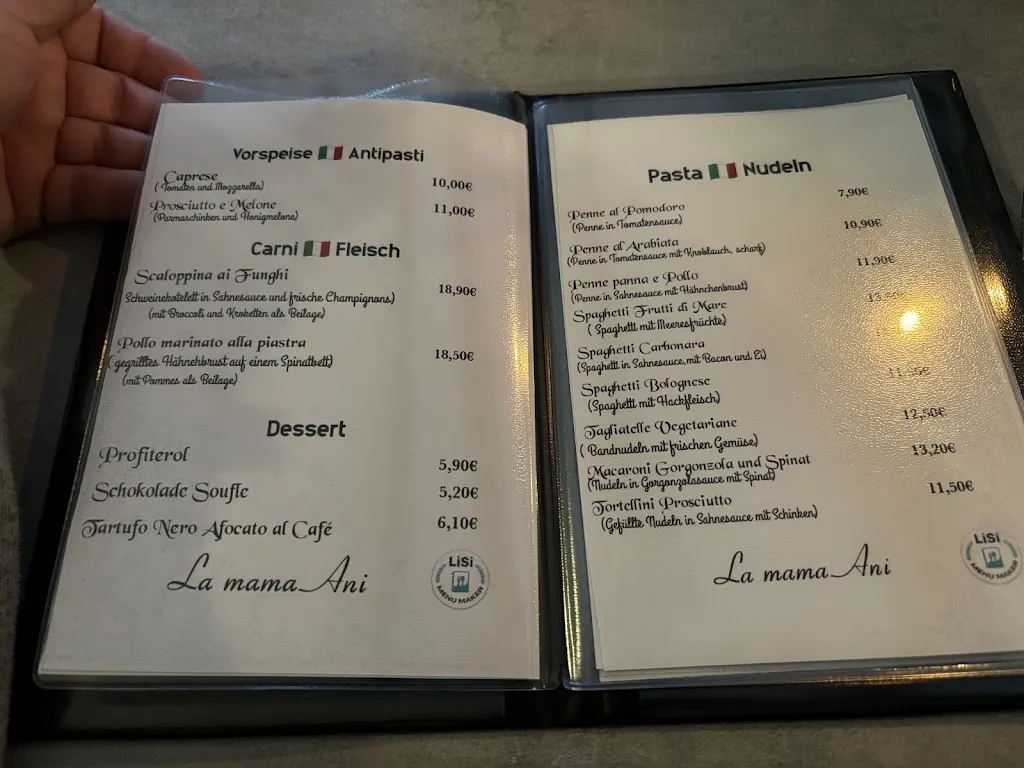 Vorspeise Antipasti
Caprese 10,00€
( Tomaten und Mozzarella)
Prosciutto e Melone 11,00€
(Parmaschinken und Honigmelone)
Carni Fleisch
Scaloppina ai Funghi 18,90€
Schweinekotelett in Sahnesauce und frische Champignons)
(mit Broccoli und Kroketten als Beilage)
Pollo marinato alla piastra 18,50€
( gegrilltes Hähnehbrust auf einem Spinatbett)
(mit Pommes als Beilage)
Dessert
Profiterol 5,90€
Schokolade Soufle 5,20€
Tartufo Nero Afocato al Café 6,10€
La mama Ani
LiSi
MENU MAKER
Pasta Nudeln
Penne al Pomodoro 7,90€
(Penne in Tomatensauce)
Penne al Arabiata 10,90€
(Penne in Tomatensauce mit Knoblauch, scharf)
Penne panna e Pollo 11,90€
(Penne in Sahnesauce mit Hähnchenbrust)
Spaghetti Frutti di Mare
( Spaghetti mit Meeresfrüchte)
Spaghetti Carbonara
(Spaghetti in Sahnesauce,mit Bacon und Ei)
Spaghetti Bolognese
(Spaghetti mit Hackfleisch)
Tagliatelle Vegetariane 12,50€
( Bandnudeln mit frischen Gemüse)
Macaroni Gorgonzola und Spinat 13,20€
(Nudeln in Gorgonzolasauce mit Spinat)
Tortellini Prosciutto 11,50€
(Gefüllte Nudeln in Sahnesauce mit Schinken)
La mama Ani
LiSi
MENU MAKER